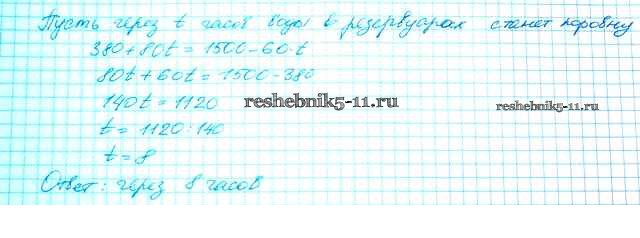 Пусть через t часов воды в резервуарах станет поровну
380+80t = 1500-60·t
80t+60t = 1500-380
140t = 1120
reshebnik5-11.ru
reshebnik5-11.ru
t = 1120:140
t = 8
Ответ: через 8 часов